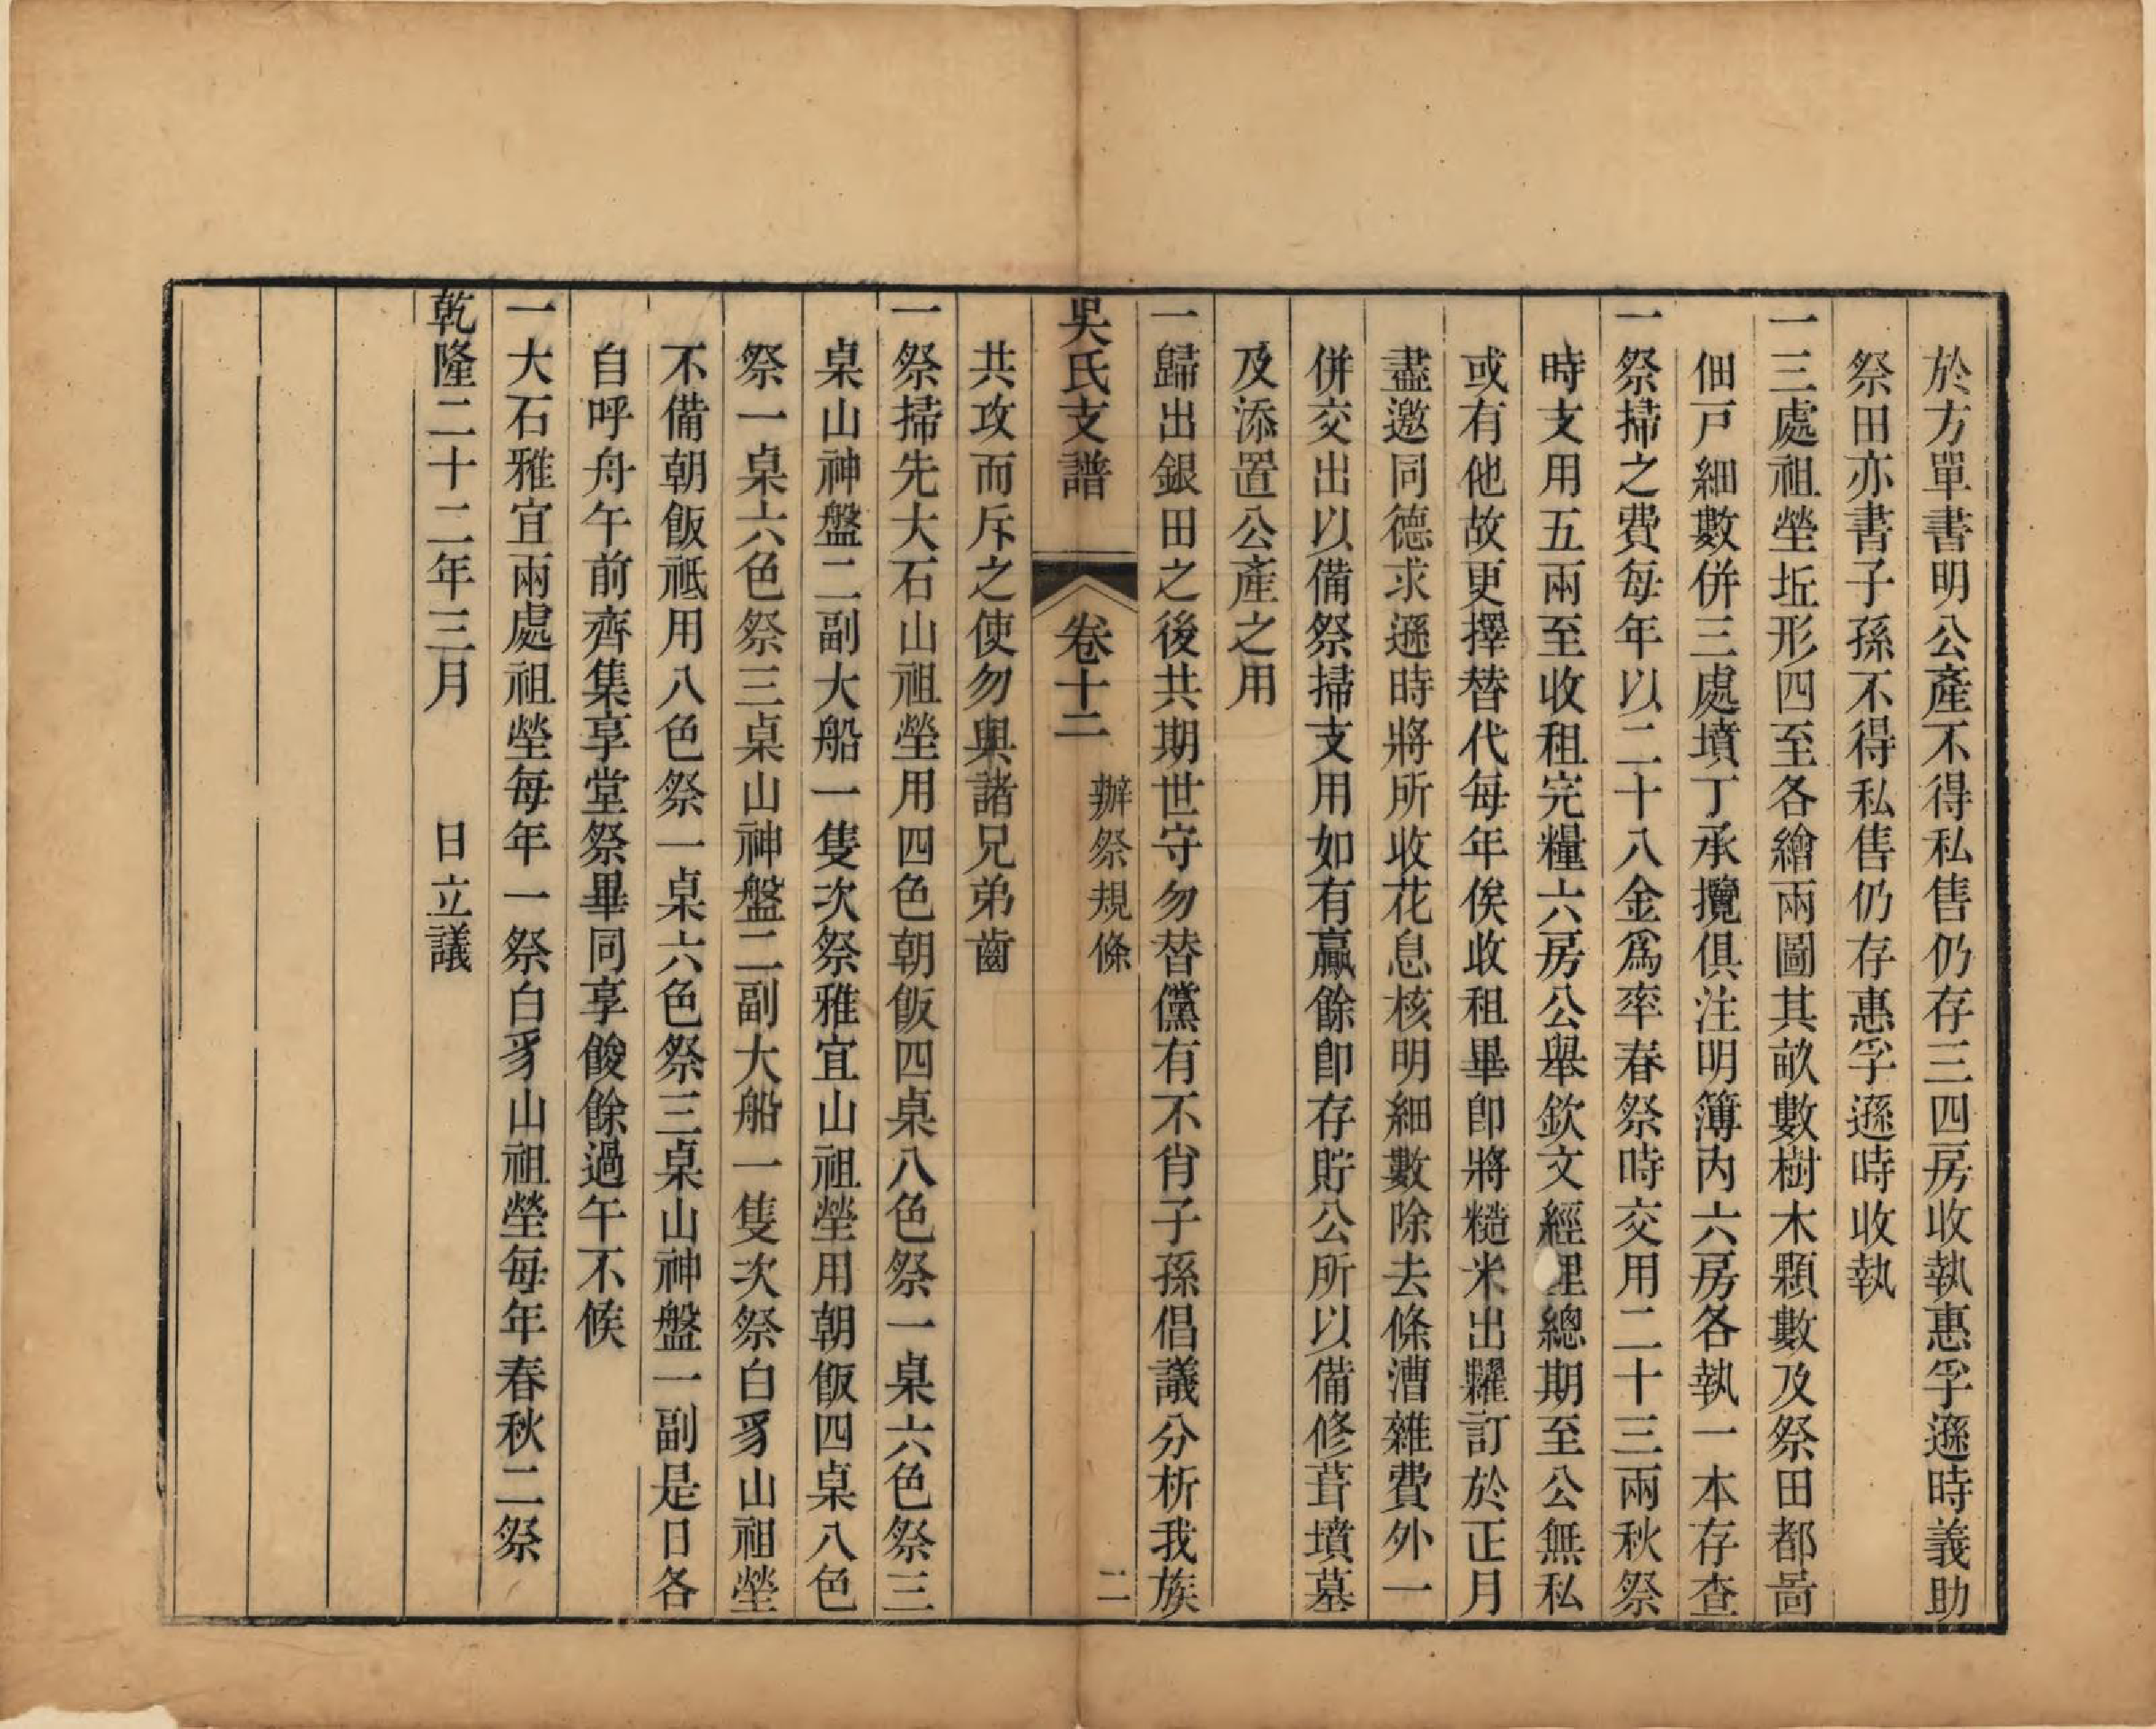 於方單書明公產不得私售仍存三四房收執惠孚遜時義助
祭田亦書子孫不得私售仍存惠孚遜時收執
一三處祖塋坵形四至各繪兩圖其畝數樹木顆數及祭田都啚
佃戸細數併三處墳丁承攬俱注明簿內六房各執一本存查
一祭掃之費每年以二十八金爲率春祭時交用二十三兩秋祭
時支用五兩至收租完糧六房公舉欽文經理總期至公無私
或有他故更擇替代每年俟收租畢即將糙米出糶訂於正月
盡邀同德求遜時將所收花息核明細數除去條漕雜費外一
併交出以備祭掃支用如有贏餘即存貯公所以備修葺墳墓
及添置公產之用
一歸出銀田之後共期世守勿替儻有不肖子孫倡議分析我族
吳氏支譜 卷十二 辦祭規條 二
共攻而斥之使勿與諸兄弟齒
一祭掃先大石山祖塋用四色朝飯四桌八色祭一桌六色祭三
桌山神盤二副大船一隻次祭雅宜山祖塋用朝飯四桌八色
祭一桌六色祭三桌山神盤二副大船一隻次祭白豸山祖塋
不備朝飯祗用八色祭一桌六色祭三桌山神盤一副是日各
自呼舟午前齊集享堂祭畢同享餕餘過午不候
一大石雅宜兩處祖塋每年一祭白豸山祖塋每年春秋二祭
乾隆二十二年三月 日立議